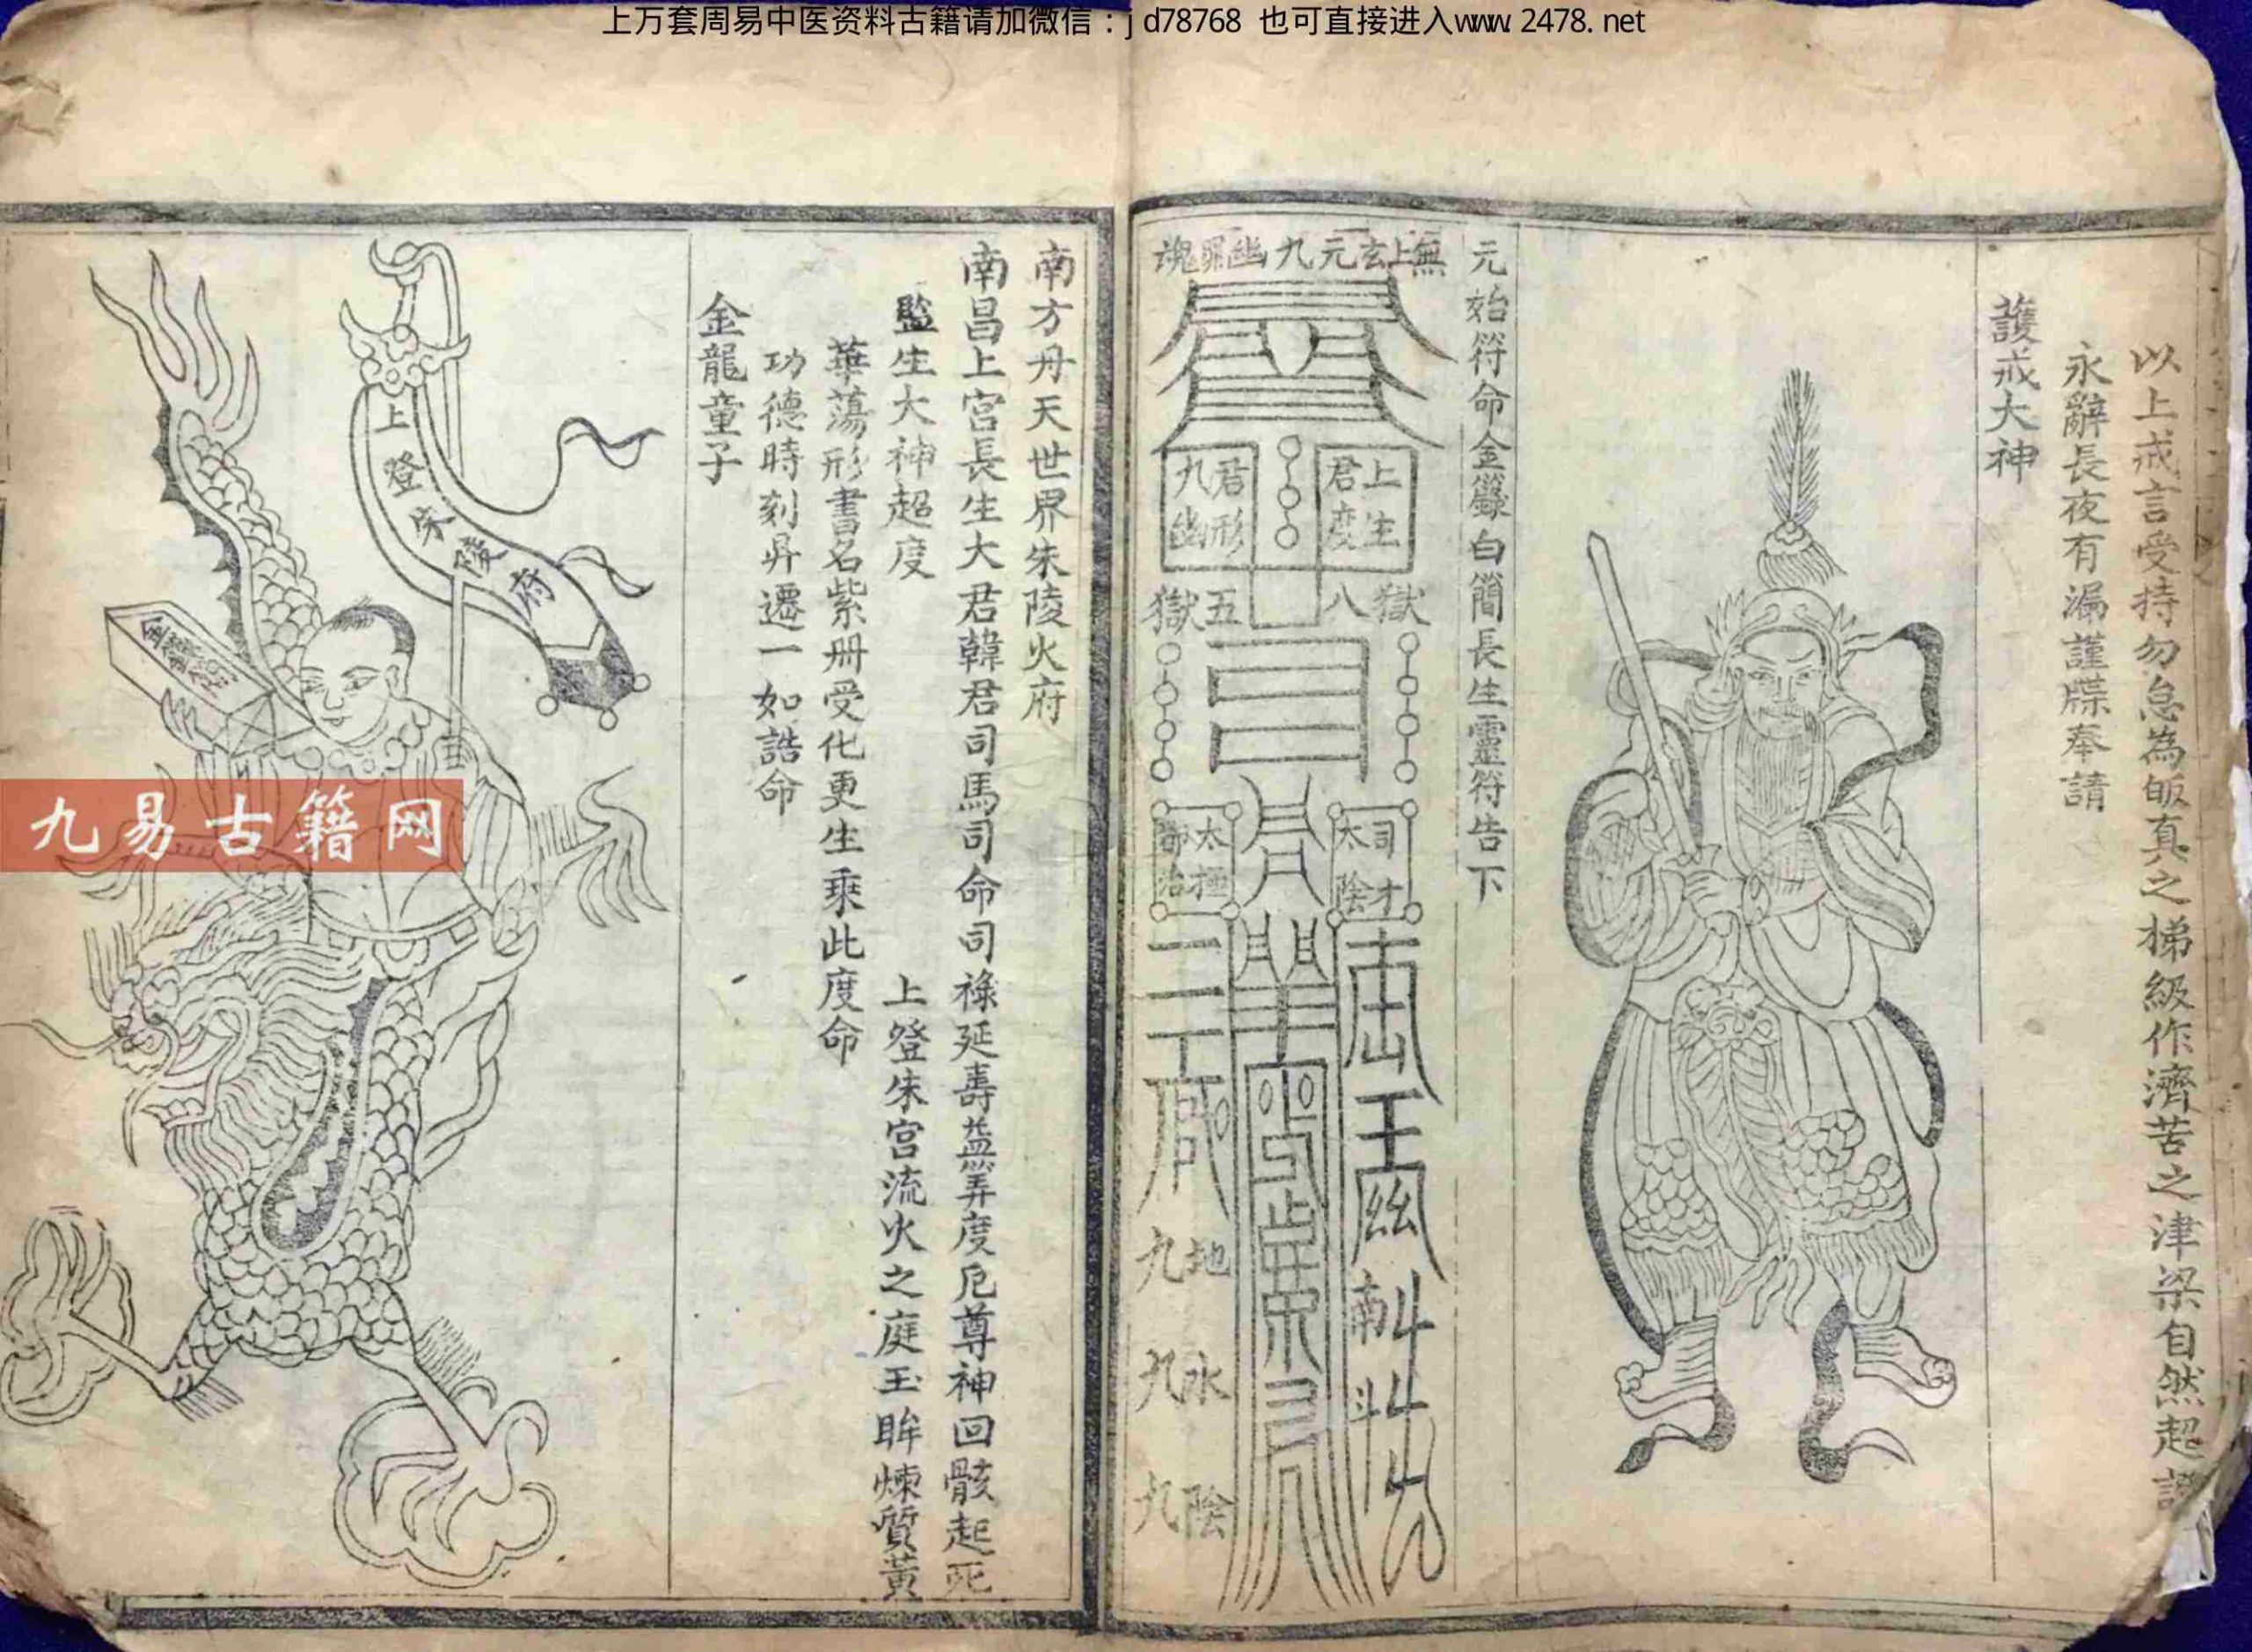 上万套周易中医资料古籍请加微信：jd78768 也可直接进入www.2478.net
以上戒言受持勿怠為皈真之梯級作濟苦之津梁自然超
永辭長夜有漏謹牒奉請
護戒大神
元始符命金籙白簡長生靈符告下
無上玄元九幽罪魂
上生
君度
君形
九幽
獄八
五獄
司
太陰
太極
地九
水九
陰九
南方丹天世界朱陵火府
南昌上宮長生大君韓君司馬司命司祿延壽益筭度厄尊神回骸起死
監生大神超度 上登朱宮流火之庭玉眸煉質黃
華蕩形書名紫册受化更生乘此度命
功德時刻昇遷一如誥命
金龍童子
上登
府
九易古籍网